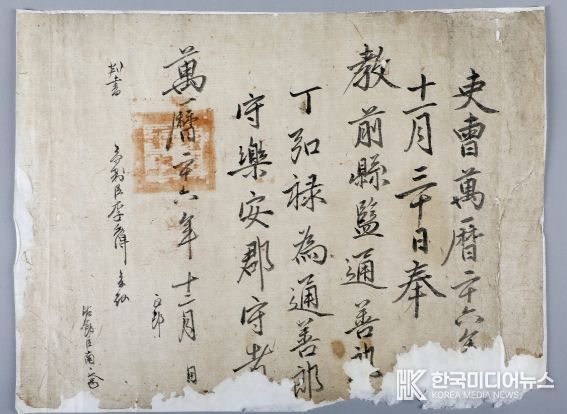 吏曹萬曆二十六年
十一月三十日奉
教前縣監通善郎
丁弘祿為通善郎
守樂安郡守者
萬曆二十六年十二月 日
判書
參判臣李
正郎
佐郎臣南
한국미디어뉴스
KOREA MEDIA NEWS